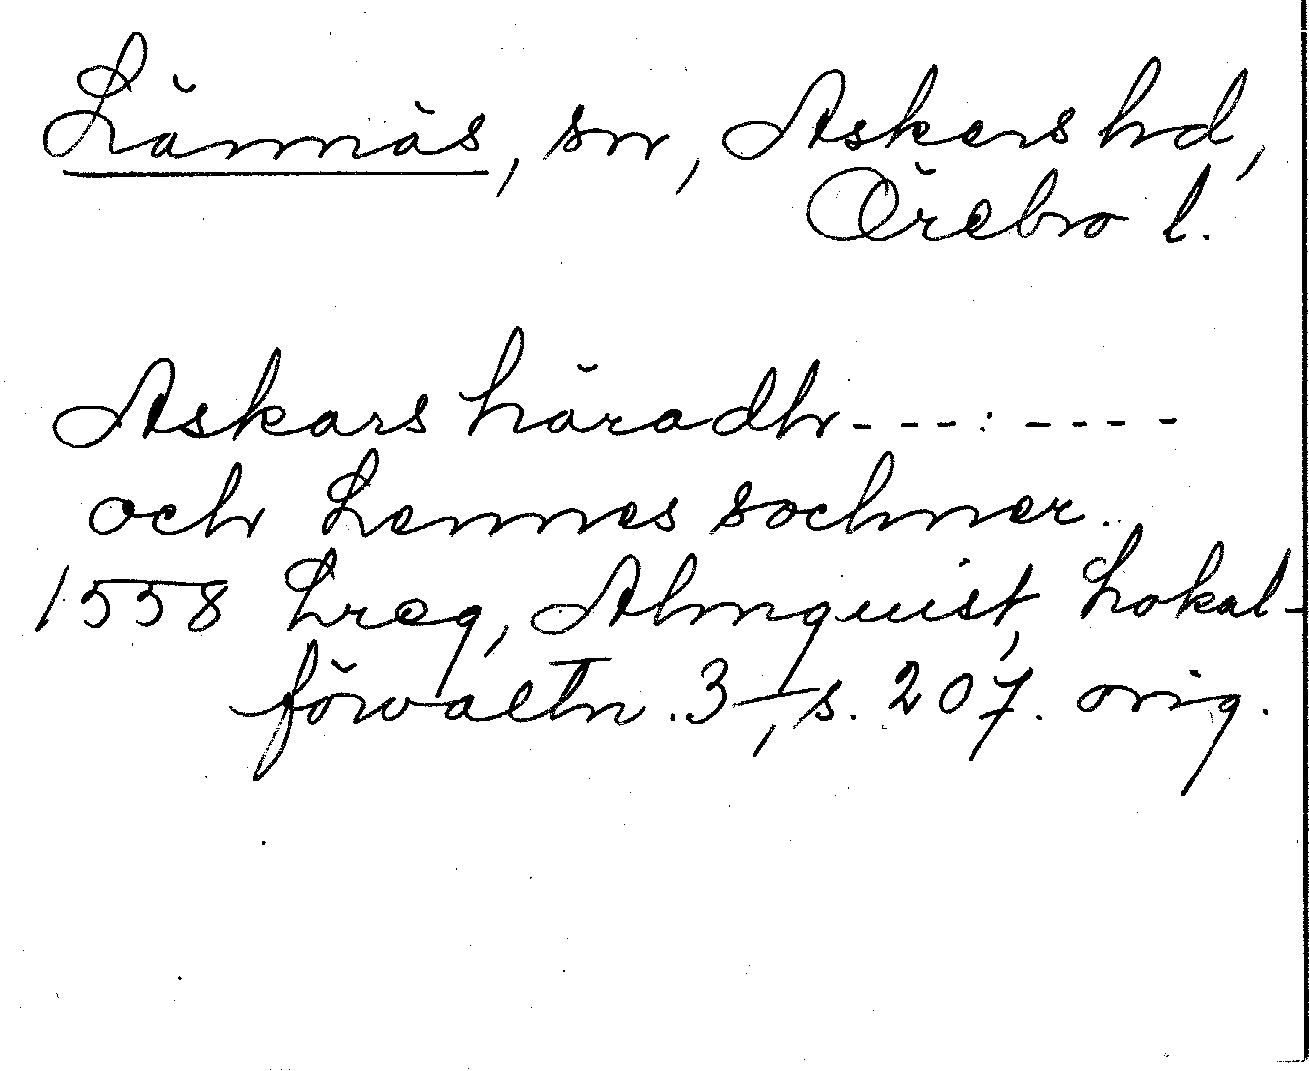 Lännäs, sn, Askers hd,
Örebro l.
Askars häradh - - - : - - - -
och Lennes sochner.
1558 Lreg, Almquist, Lokal-
förvaltn. 3, s. 207. orig.